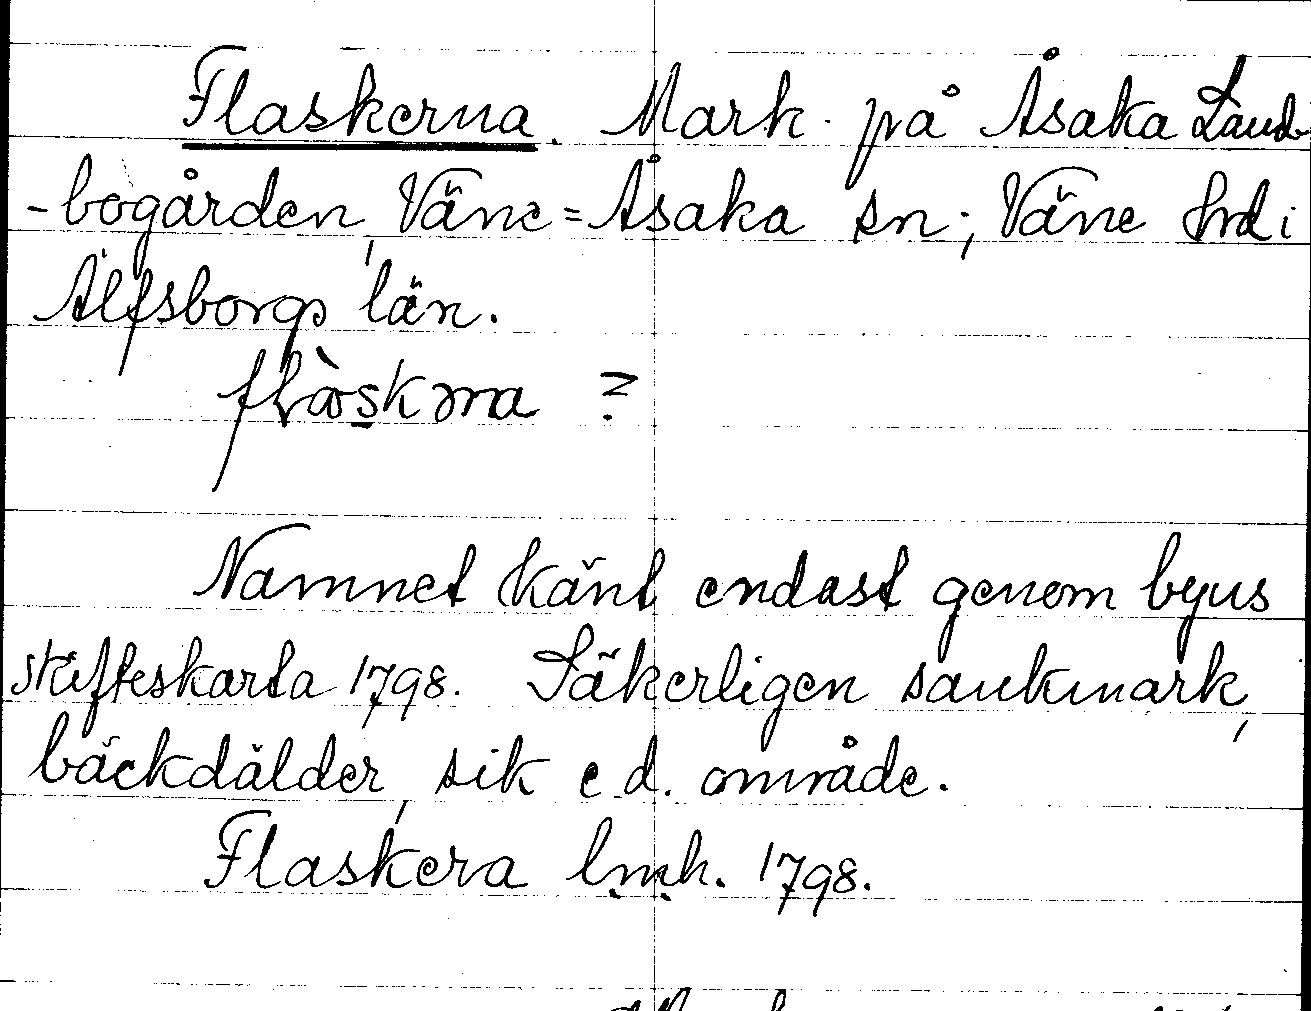 Flaskerna. Mark på Åsaka Land-
-bogården, Väne=Åsaka sn; Väne hrd i
Älfsborgs län.
flàskəna ?
Namnet känt endast genom byns
skifteskarta 1798. Säkerligen sankmark,
bäckdälder, sik e.d. område.
Flaskera lmh. 1798.